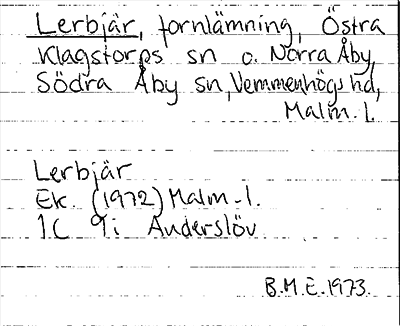 Lerbjär, fornlämning, Östra
Klagstorps sn o. Norra Åby,
Södra Åby sn, Vemmenhögs hd,
Malm. l.
Lerbjär
Ek. (1972) Malm. l.
1C 9i Anderslöv
B.M.E. 1973.